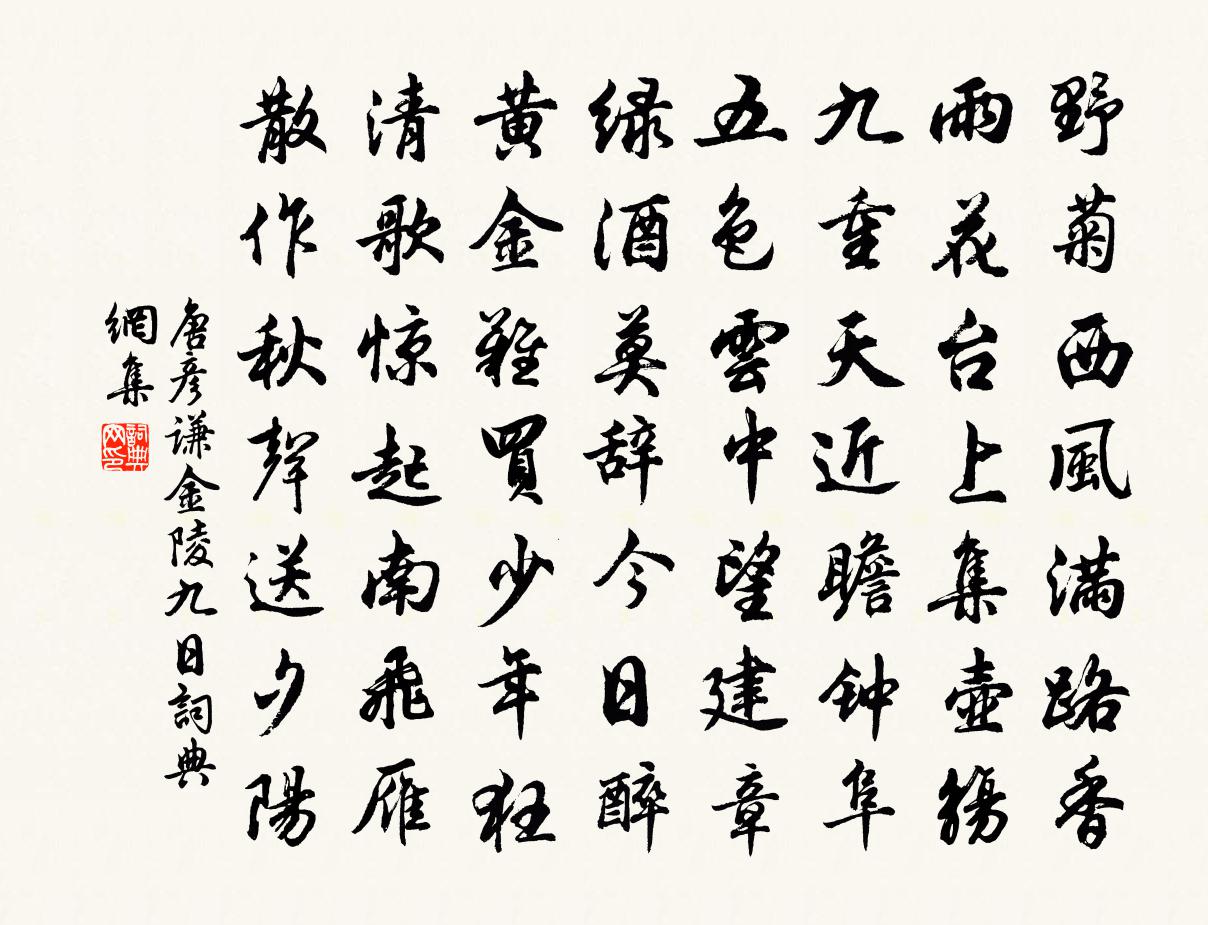 野菊西風滿路香
雨花台上集壺觴
九重天近瞻钟阜
五色雲中望建章
绿酒莫辞今日醉
黄金難買少年狂
清歌惊起南飛雁
散作秋聲送夕陽
唐彦谦金陵九日詞典
網集
詞典
网印